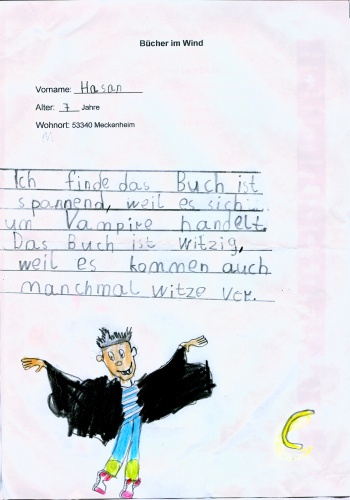 Bücher im Wind
Vorname: Hasan
Alter: 7 Jahre
Wohnort: 53340 Meckenheim
Ich finde das Buch ist
spannend, weil es sich
um Vampire handelt.
Das Buch ist witzig,
weil es kommen auch
manchmal witze vor.